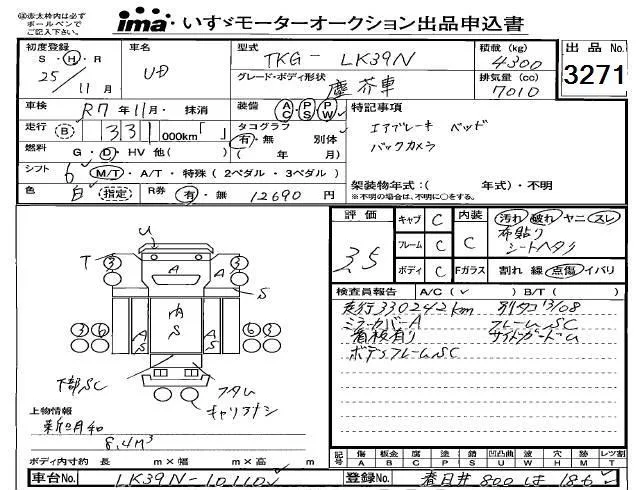 (注)赤太枠内は必ず
ボールペンで
ご記入下さい。
ima いすゞモーターオークション出品申込書
初度登録 S・H・R 25/11月
車名 UD
型式 TKG- LK39N
積載(kg) 4300
出品No. 3271
グレード・ボディ形状 塵芥車
排気量(cc) 7010
車検 R7年11月・抹消
装備 AC・PS・PW
特記事項
エアブレーキ ベッド
バックカメラ
走行 B 331,000km「 」
タコグラフ 有・無 別体
( 年 月)
燃料 G・D・HV 他( )
シフト 6 M/T・A/T・特殊(2ペダル・3ペダル)
架装物年式:( 年式)・不明
※不明の場合は、不明に○をする。
色 白 指定 R券 有・無 12690円
評価 3.5
キャブ C
フレーム C
ボディ C
内装 C
Fガラス
汚れ 破れ ヤニ スレ
布貼り
シートヘタリ
割れ 線 点傷 イバリ
検査員報告 A/C(✓)B/T( )
走行330242km 別タコ13/08
ミラーカバーA フレームSC
看板有り サイドガードム
ボデーフレームSC
U
T 3 A 3
S
A S A S A S
3 6 6 3
下部SC
フタム
キャリアナシ
上物情報
新明和
8.4m³
ボディ内寸約 長 m×幅 m×高 m
記号 傷A 板金B 腐C 塗P 錆S 凹凸曲U 波W 穴H 跡M レツ割T
車台No. LK39N-10110
登録No. 春日井 800 は 186